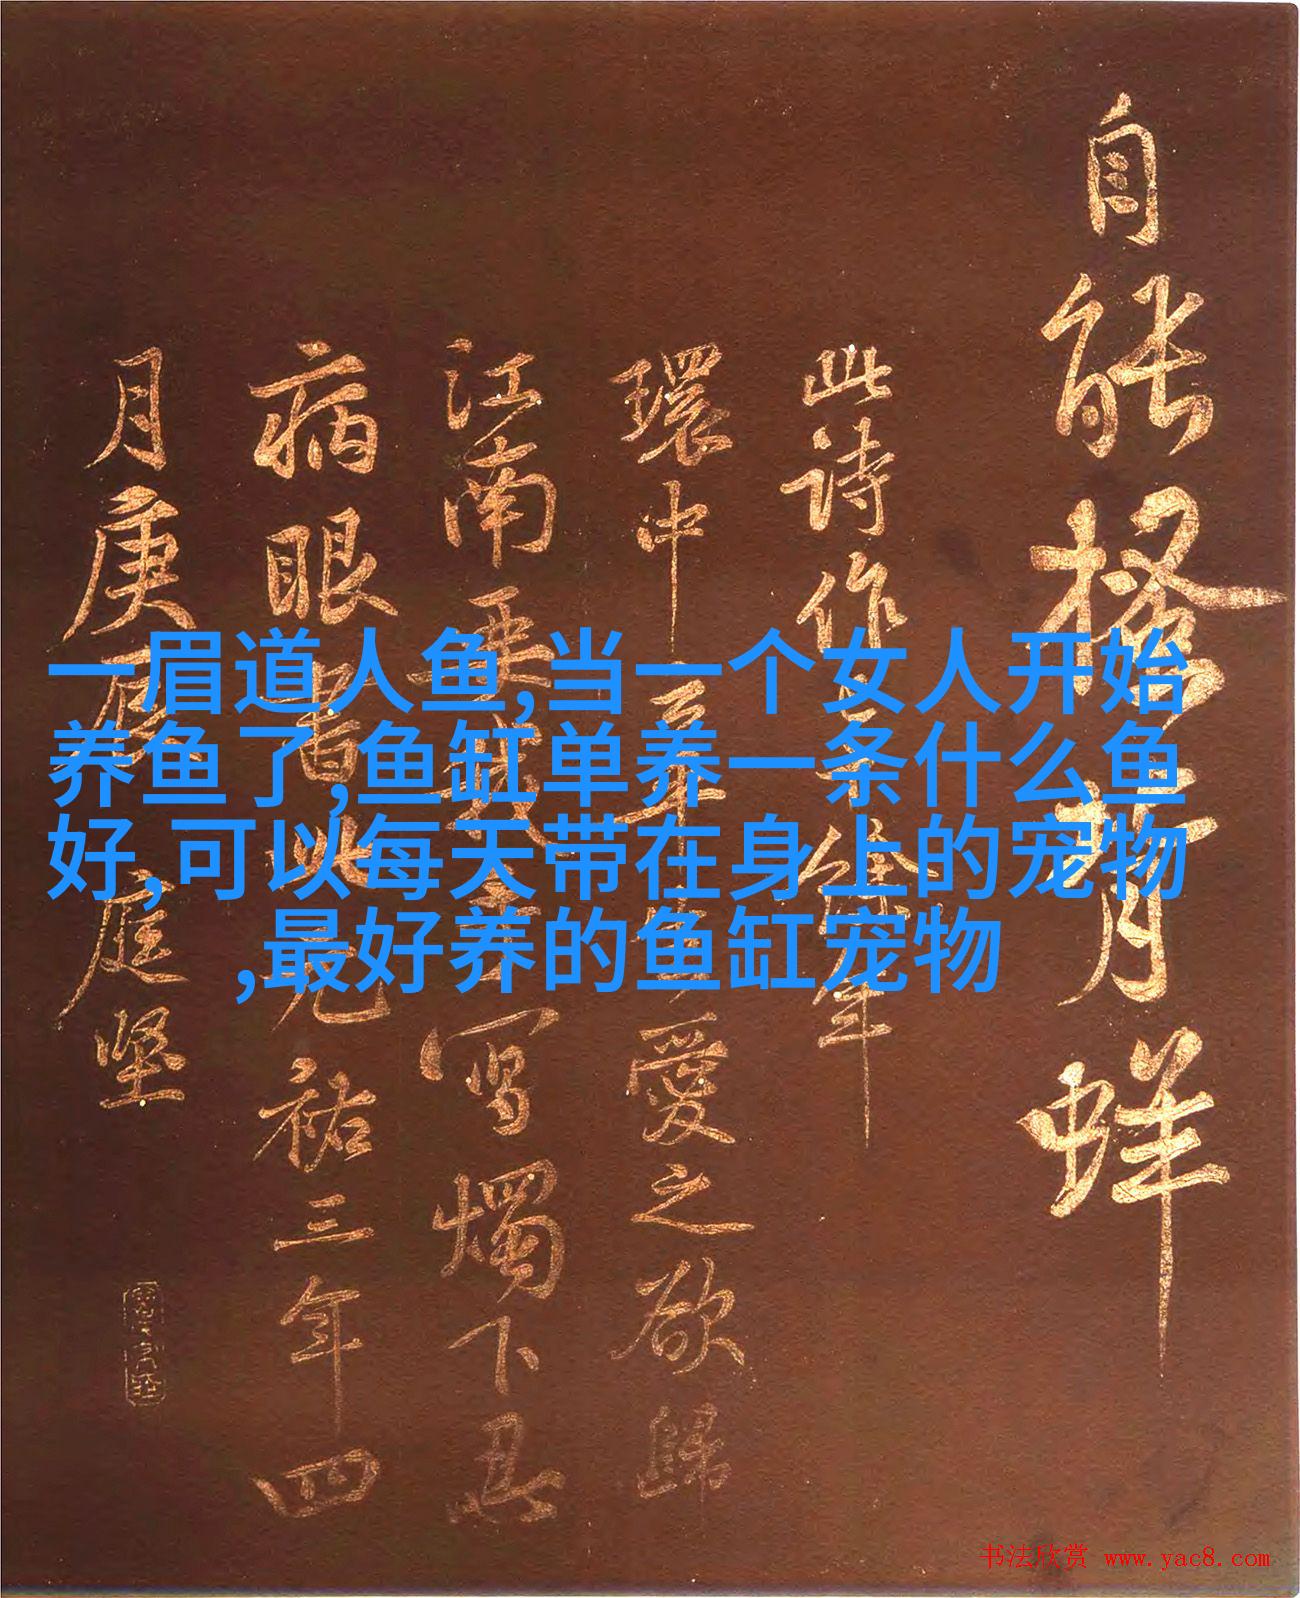 自能格青蜂
此诗作
環中 愛之欲歸
江南 写燭下忍
病眼書此元祐三年四
月庚辰 庭堅
一眉道人鱼,当一个女人开始
养鱼了,鱼缸单养一条什么鱼
好,可以每天带在身上的宠物
,最好养的鱼缸宠物
书法欣赏 www.yac8.com